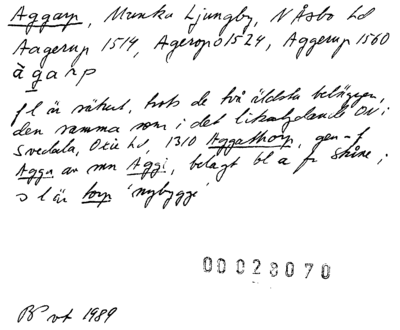 Aggarp, Munka Ljungby, N Åsbo hd
Aagerup 1514, Agerop 1524, Aggerup 1560
àgarp
fl är säkert, trots de två äldsta beläggen,
den samma som i det likalydande ON i
Svedala, Oxie hd, 1310 Aggathorp, gen. f
Agga av mn Aggi, belagt bl a fr Skåne;
sl är torp 'nybygge'
00028070
vt 1989